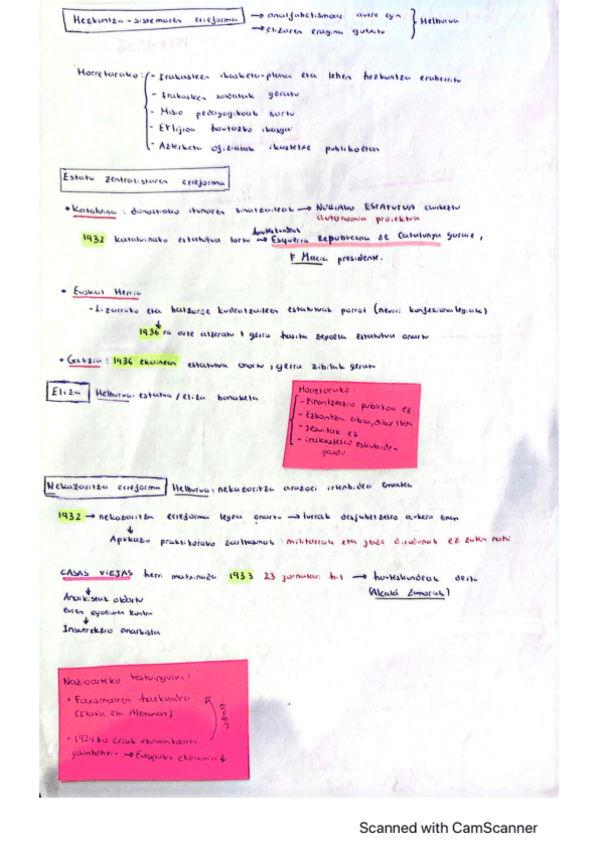 Hezkuntza-sistemaren erreforma → analfabetismoari aurre egin
→ elizaren eragina gutxitu } Helburua
Horretarako: - Irakasleen ikasketa-plana eta lehen hezkuntza eraberritu
- Irakasleen soldatak goratu
- Misio pedagogikoak sortu
- Erlijioa hautazko ikasgai
- Azterketa ofizialak ikastetxe publikoetan
Estatu zentralistaren erreforma
• Katalunia: donostiako itunaren sinatzaileak → NURIAKO ESTATUTUA
autonomia proiektua
1932 kataluniako estatutua sortu → Esquerra Republicana de Catalunya garaile,
hauteskundeak
F Macia presidente.
• Euskal Herria
- Lizarrako eta batzorde kudeatzaileen estatutuak porrot
1936ra arte atzeratu, gerra hasita zegoela estatutua onartu
• Galizia: 1936 ekainean estatutua onartu, gerra zibilak geratu
Eliza Helburua: estatua / eliza banaketa
Horretarako
- Finantzazio publikoa ez
- Ezkontza zibila,
- Jesuitak ez
- irakasteko eskubidea
galdu
Nekazaritza erreforma Helburua: nekazaritza arazoei irtenbidea ematea
1932 → nekazaritza erreforma legea onartu → lurrak desjabetzeko aukera eman
Apurka praktikarako zailtasunak militarrak eta jende diruduna ez zuten nahi
CASAS VIEJAS herri matxinada 1933 23 jornalari hil → hauteskundeak deitu
(Alcalá Zamorak)
Anarkistak oldartu
euren aurka
Insurrekzio anarkista
Nazioarteko testuingurua:
• Faxismoaren hazkundea
(Italia eta Alemania)
eragin
• 1929ko crack ekonomikoaren
gainbehera → Europako ekonomia ↓
Scanned with CamScanner